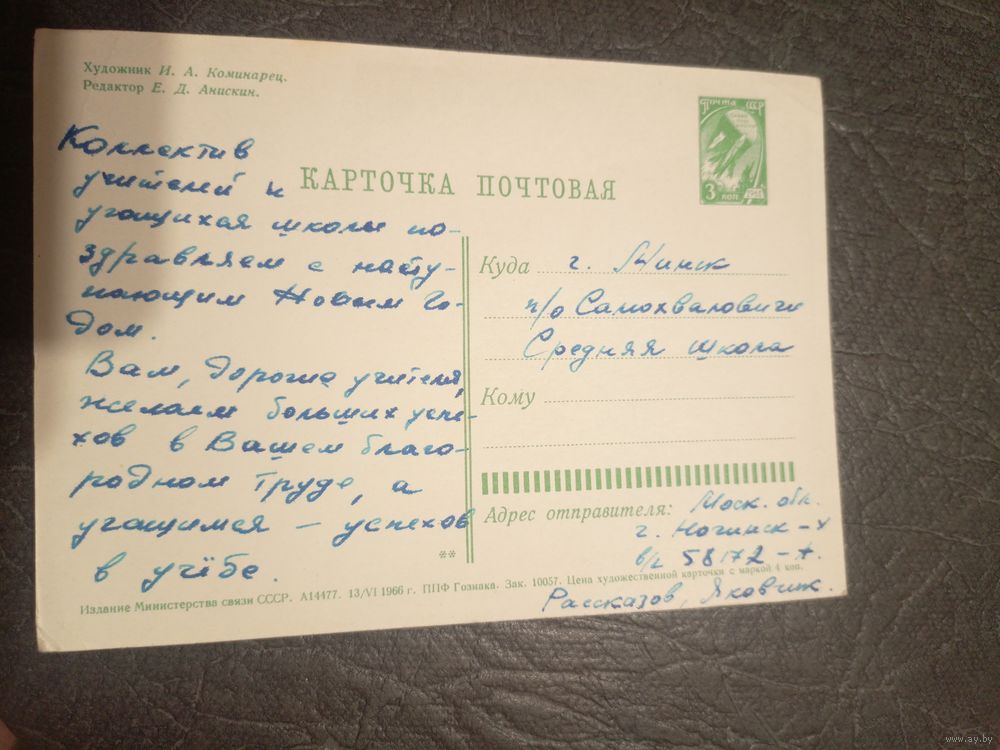 Художник И. А. Коминарец.
Редактор Е. Д. Анискин.
КАРТОЧКА ПОЧТОВАЯ
Почта СССР
3 коп
Коллектив
учителей и
учащихся школы по-
здравляем с насту-
пающим Новым Го-
дом.
Вам, дорогие учителя,
желаем больших успе-
хов в Вашем благо-
родном труде, а
учащимся – успехов
в учёбе.
Куда г. Минск
п/о Самохваловичи
Средняя школа
Кому
Адрес отправителя: Моск. обл.
г. Ногинск-
в/ч 58172-
Рассказов, Яковчик.
**
Издание Министерства связи СССР. А14477. 13/VI 1966 г. ППФ Гознака. Зак. 10057. Цена художественной карточки с маркой 4 коп.
www.ay.by